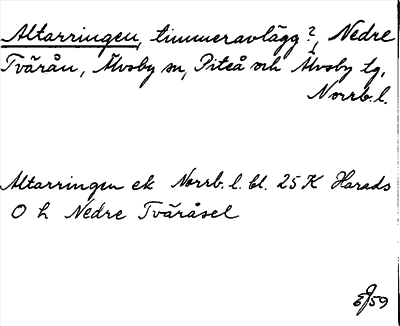 Altarringen, timmeravlägg?, Nedre
Tvärån, Älvsby sn, Piteå och Älvsby tg,
Norrb. l.
Altarringen ek Norrb. l. bl. 25 K Harads
O h Nedre Tväråsel
59